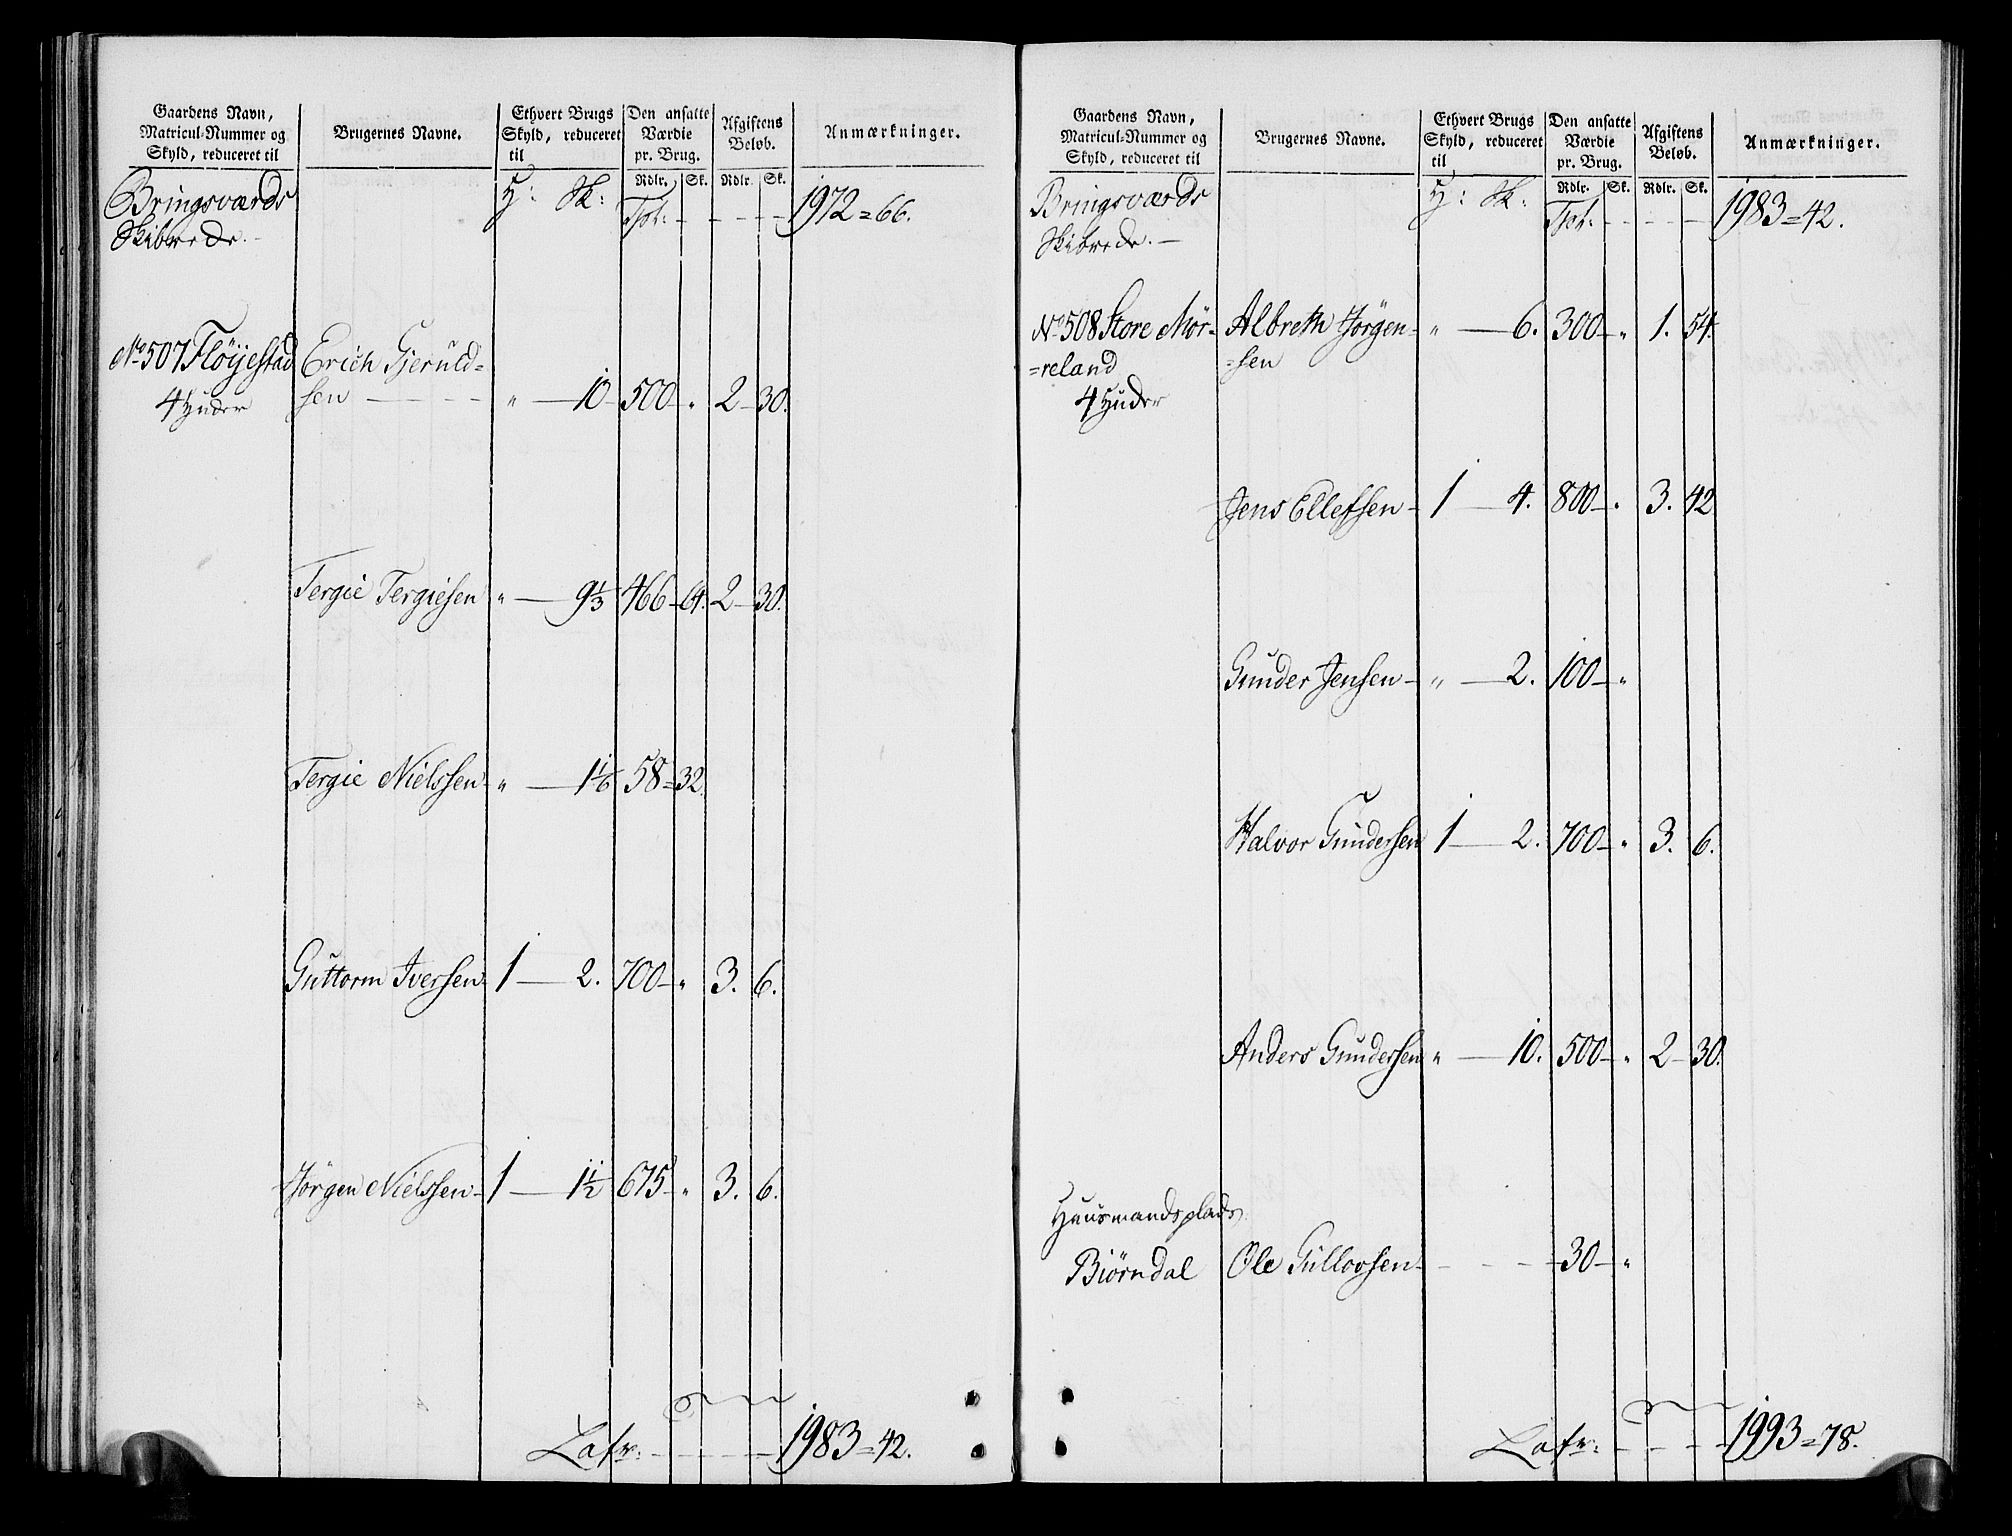 Gaardens Navn,
Matricul-Nummer og
Skyld, reduceret til
Brugernes Navne.
Ethvert Brugs
Skyld, reduceret
til
Den ansatte
Værdie
pr. Brug.
Afgiftens
Beløb.
Anmærkninger.
Rdlr. Sk. Rdlr. Sk.
Bringsværds H: Sk: Tpt: - - - - 1972=66.
Skibrede.
No 507 Fløyestad Erich Gieruld=
4 Huder sen - - - " — 10 - 500 - " 2 - 30.
Tergie Tergiesen " — 9 1/3 466 - 64. 2 - 30.
Tergie Nielssen - " — 1 1/6 58 = 32.
Guttorm Iversen - 1 — 2. 700 - " 3. 6.
Jørgen Nielssen - 1 — 1 1/2 675 - " 3. 6.
Lafr: - - - - 1983=42.
Gaardens Navn,
Matricul-Nummer og
Skyld, reduceret til
Brugernes Navne.
Ethvert Brugs
Skyld, reduceret
til
Den ansatte
Værdie
pr. Brug.
Afgiftens
Beløb.
Anmærkninger.
Rdlr. Sk. Rdlr. Sk.
Bringsværds H: Sk: Tpt: - - - - 1983=42.
Skibrede. —
No 508 Store Mör- Albreth Jörgen- " — 6. 300 - " 1. 54.
=reland =sen
4 Huder
Jens Ellefsen - 1 — 4. 800 - " 3. 42
Gunder Jensen - " — 2. 100 - "
Halvor Gundersen 1 — 2. 700 - " 3. 6.
Anders Gundersen " — 10. 500 - " 2 - 30.
Huusmandsplads
Biørndal Ole Gullovsen - - - - 30 - "
Lafr: - - - - 1993=78.